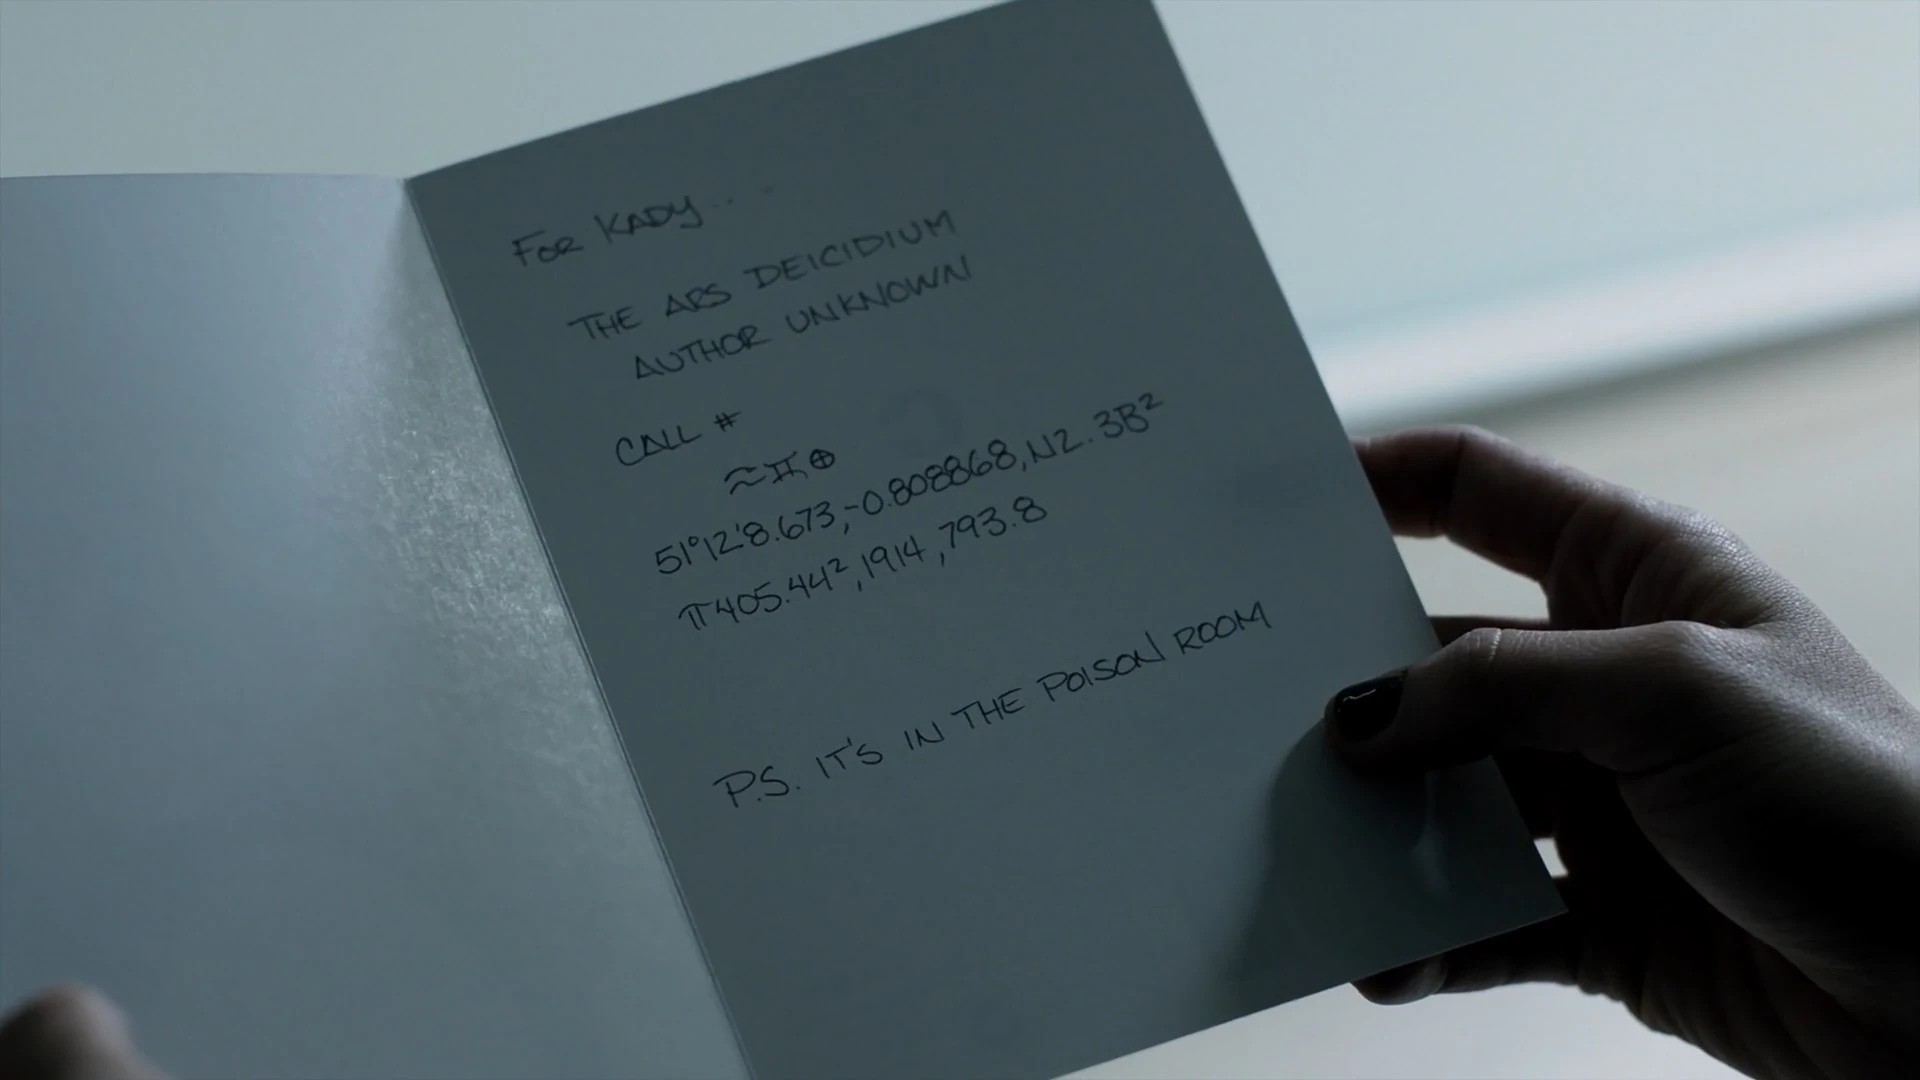 FOR KADY...
THE ARS DEICIDIUM
AUTHOR UNKNOWN
CALL #
≈♊⊕
51°12'8.673,-0.808868,N2.3B²
π405.44²,1914,793.8
P.S. IT'S IN THE POISON ROOM